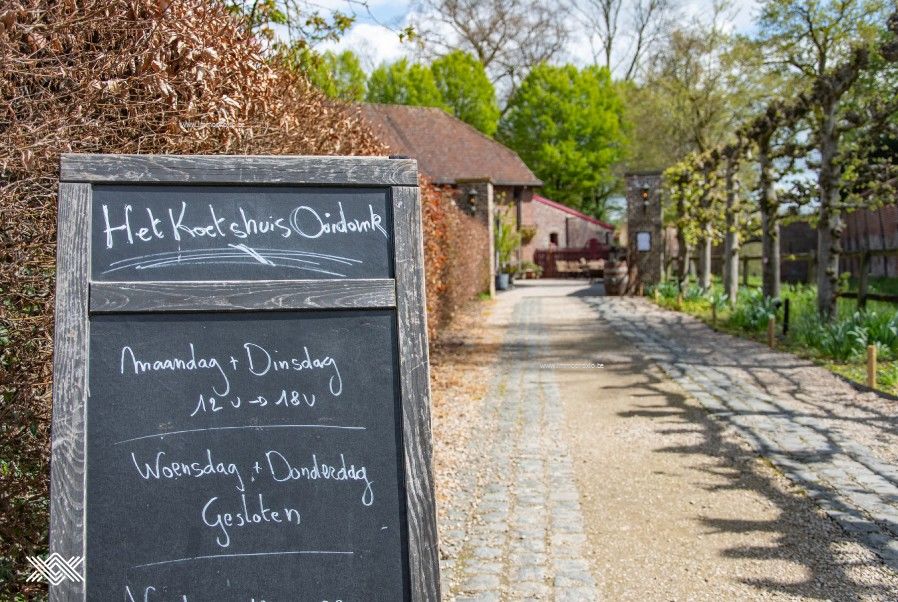 Het Koetshuis Ooidonk
Maandag + Dinsdag
12 u → 18 u
Woensdag + Donderdag
Gesloten